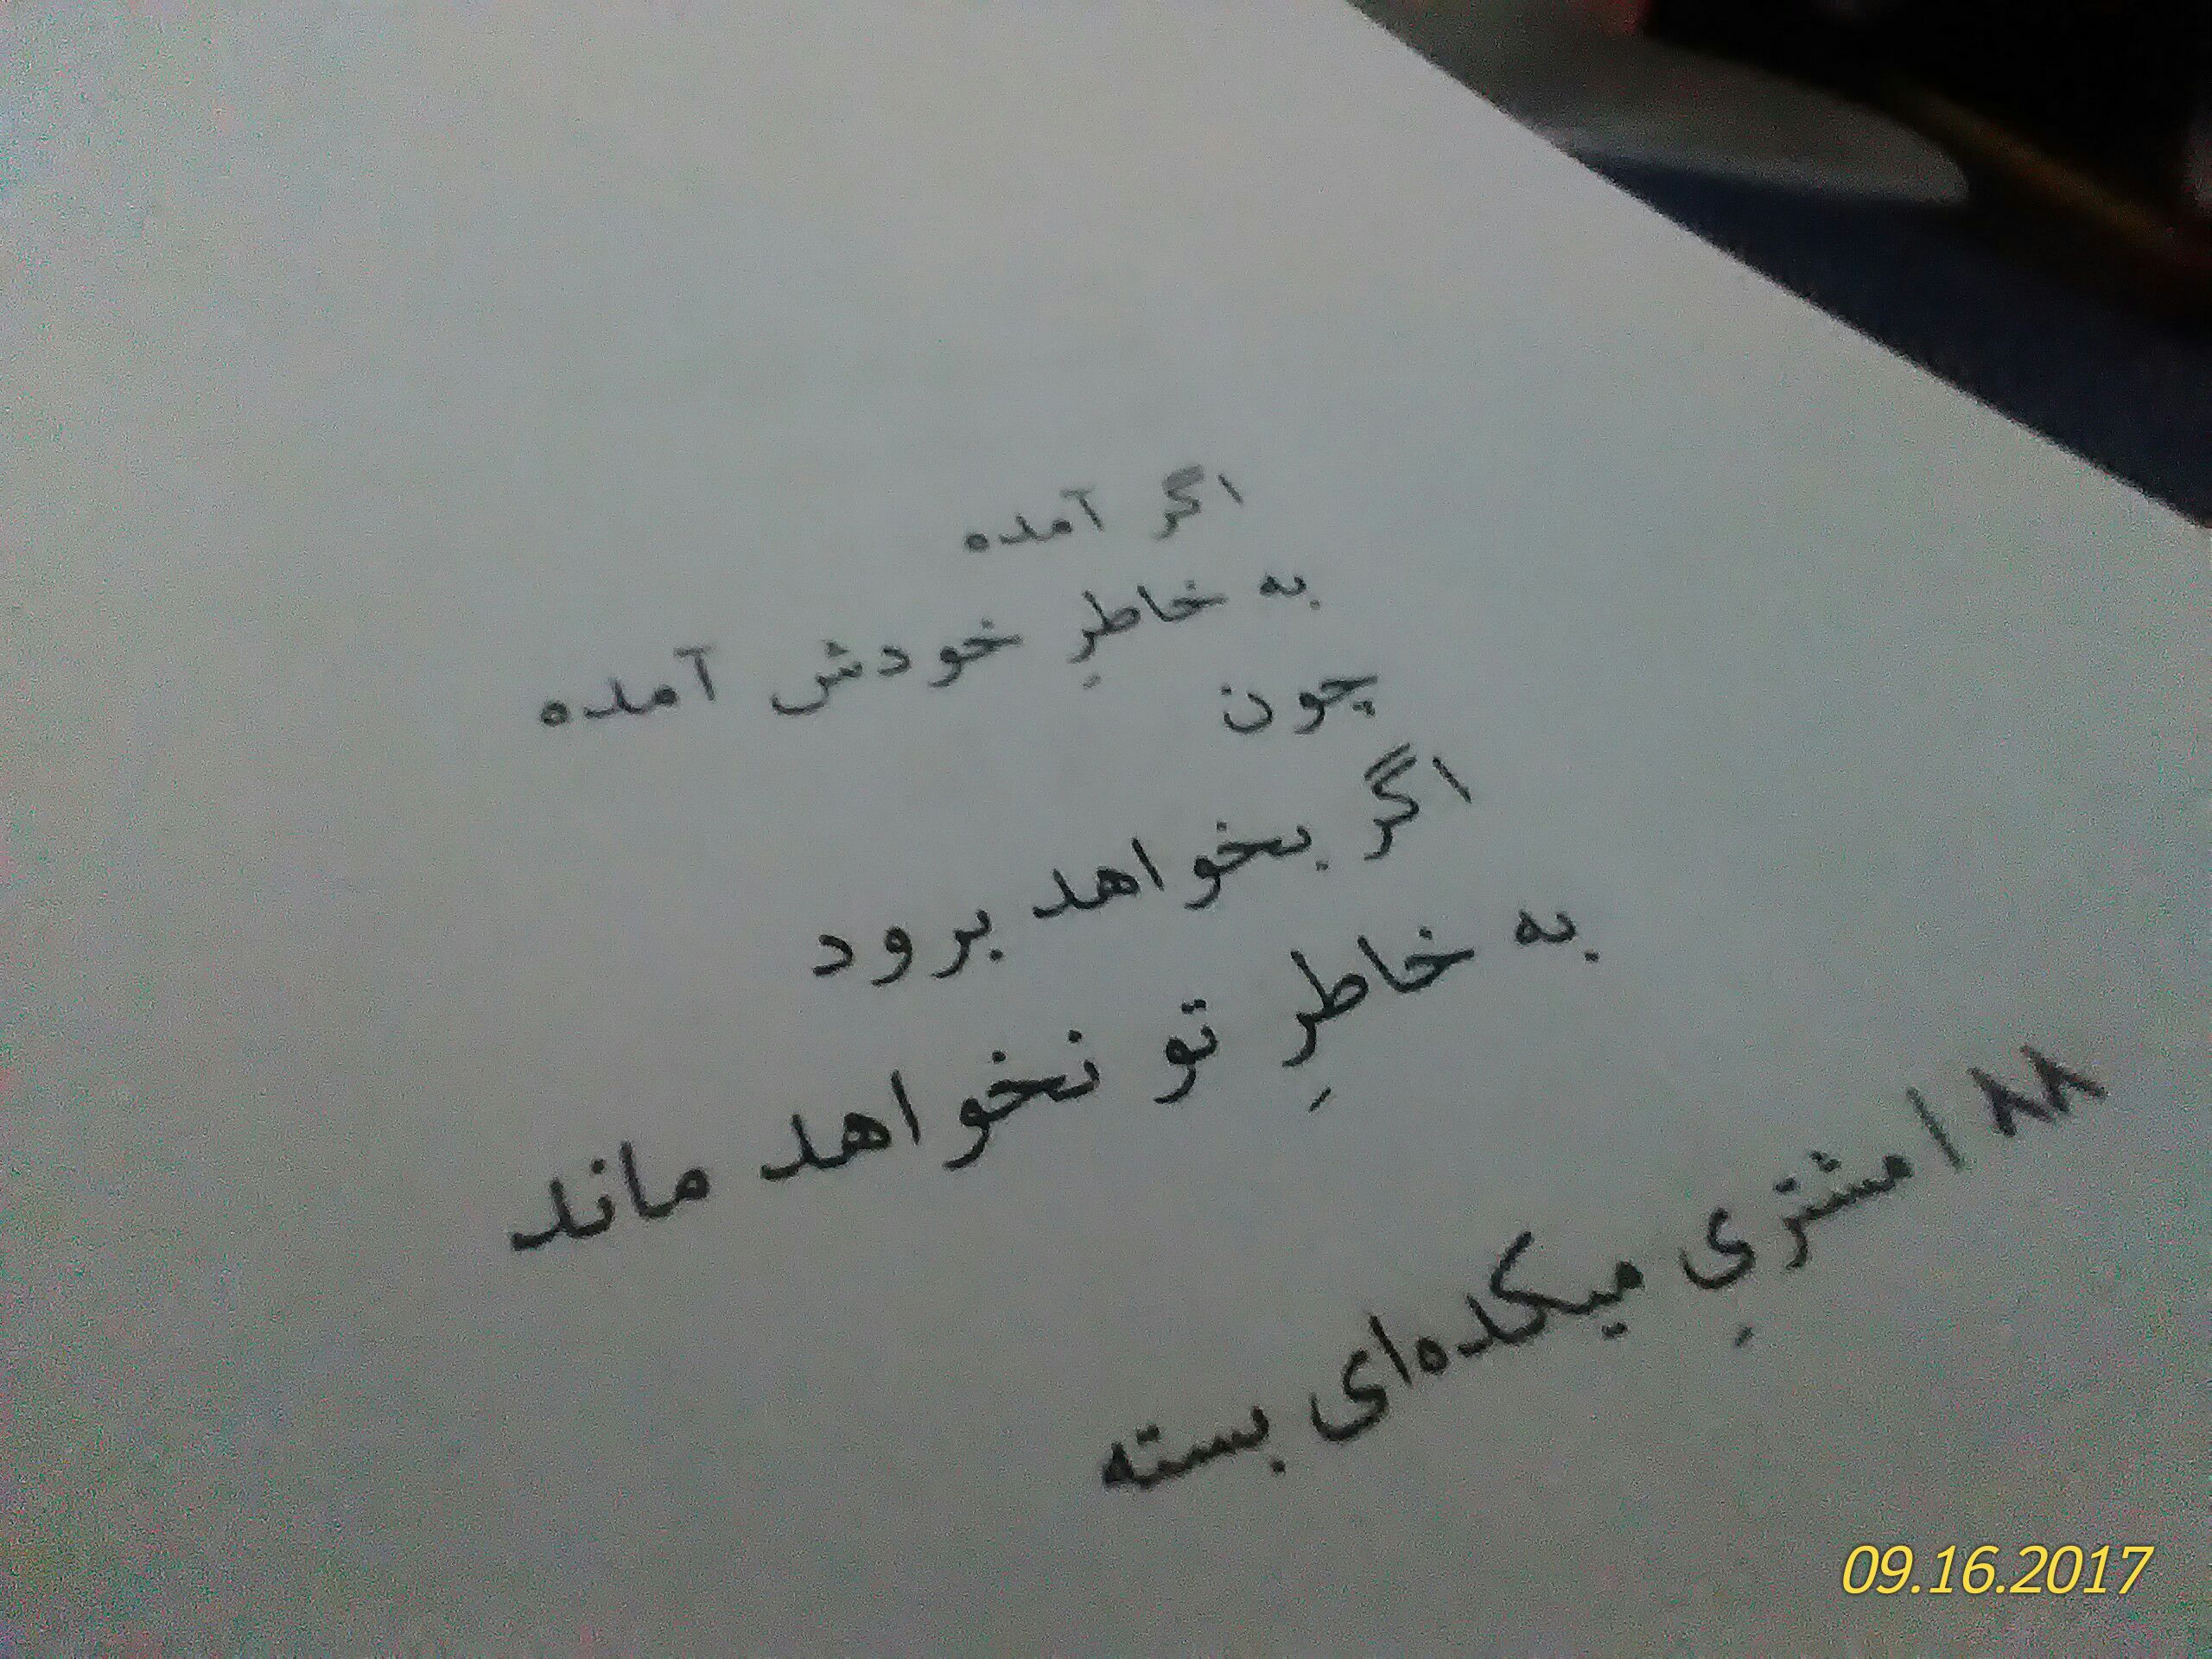 اگر آمده
به خاطرِ خودش آمده
چون
اگر بخواهد برود
به خاطرِ تو نخواهد ماند
۸۸ | مشتریِ میکده‌ای بسته
09.16.2017